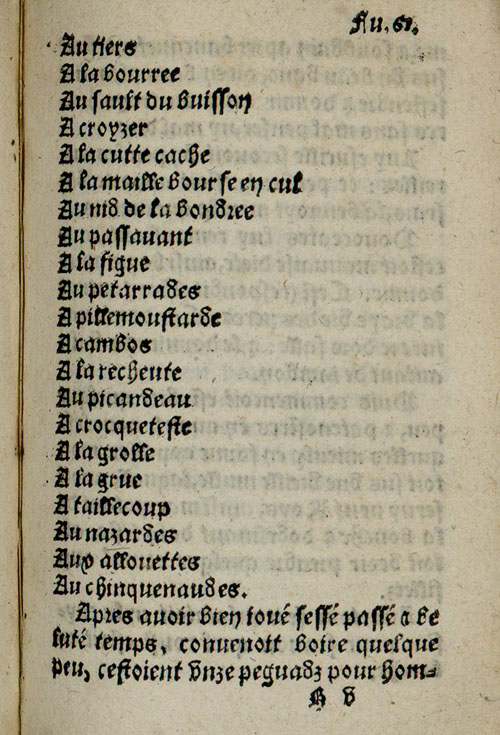 Fu. 61.
Au tiers
A la bourree
Au sault du buisson
A croyzer
A la cutte cache
A la maille bourse en cul
Au nid de la bondree
Au passauant
A la figue
Au petarrades
A pillemoustarde
A cambos
A la recheute
Au picandeau
A crocqueteste
A la grolle
A la grue
A taillecoup
Au nazardes
Aux allouettes
Au chinquenaudes.
Apres auoir bien ioué sessé passé a be
luté temps, conuenoit boire quelque
peu, cestoient vnze peguadz pour hom-
B v